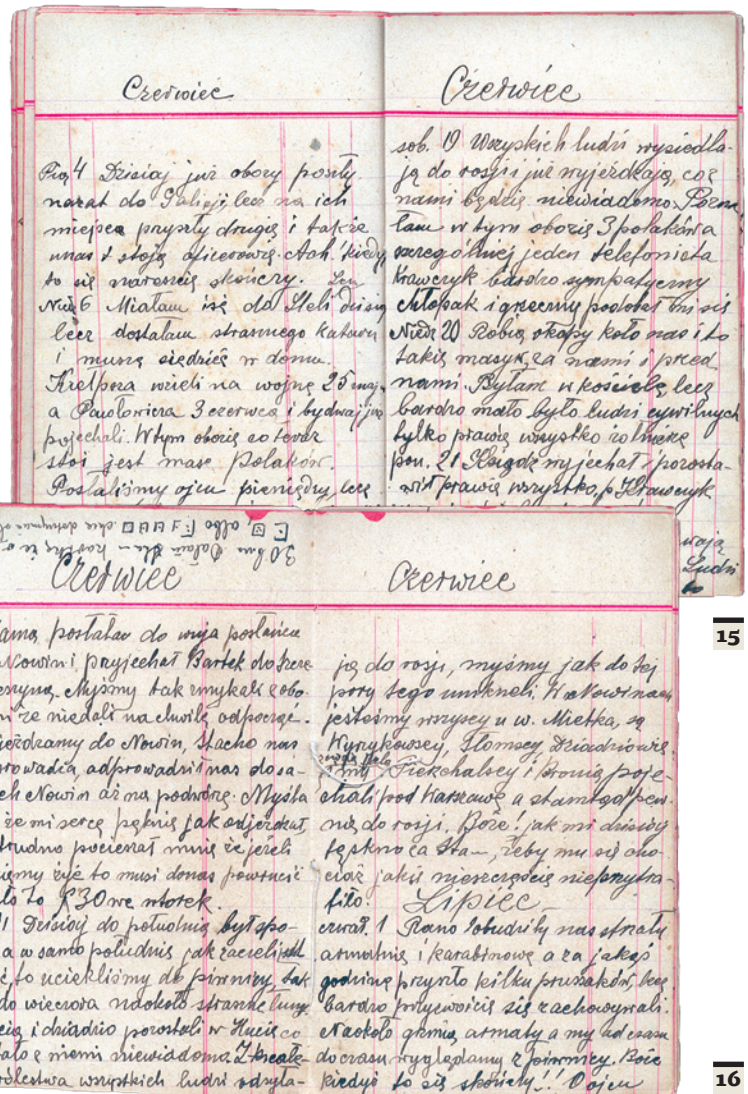 Czerwiec
Pią 4 Dzisiaj już obozy poszły
narat do Galicji, lecz na ich
miejsce przyszły drugie i także
u nas stoją oficerowie. Ach! kiedy
to się nareszcie skończy.
Nie 6 Miałam iść do Steli dzisiaj
lecz dostałam strasznego kataru
i muszę siedzieć w domu.
wzieli na wojnę 25 maj.
a Pawłowicza 3 czerwca i bydwaj już
pojechali. W tym obozie co teraz
stoi jest masę Polaków.
Posłaliśmy ojcu pieniędzy, lecz
Czerwiec
sob. 19 Wszyskich ludzi wysiedla-
ją do rosji i już wyjeżdżają, co z
nami będzie niewiadomo. Pozna
łam w tym obozie 3 polaków a
szczególniej jeden telefonista
Krawczyk bardzo sympatyczny
chłopak i grzeczny podobał mi się
Niedz 20 Robią okopy koło nas i to
takie masyw, za nami i przed
nami. Byłam w kościele lecz
bardzo mało było ludzi cywilnych
tylko prawie wszystko żołnierze
pon. 21 Ksiądz wyjechał i pozosta-
wił prawie wszystko, p. Krawczyk
wają
Ludzi
to
15
Czerwiec
posłała do wuja posłańca
Nowin i przyjechał Bartek do Szcze
eszyna. Myśmy tak zmykali z obo
mi że niedali na chwilę odpocząć.
jeżdżamy do Nowin, Stacho nas
rowadza, odprowadził nas do sa-
ch Nowin aż na podwórze. Myśla
że mi serce pęknie jak odjeżdżał,
trudno pocieszał mnie że jeżeli
iemy żyć to musi do nas powrócić
ło to 30 we wtorek.
Dzisiaj do południa był spo-
a w samo południe jak zaczeli
ć, to uciekliśmy do piwnicy, tak
do wieczora naokoło straszne łuny
cia i dziadzio pozostali w Hucie co
ało z niemi niewiadomo. Z
rólestwa wszystkich ludzi odsyła-
Czerwiec
ją do rosji, myśmy jak do tej
pory tego unikneli. W Nowinach
jesteśmy wszyscy u w. Mietka, są
Wyrzykowscy, Słomscy Dziadziowie
i my Piekchalscy i Bronia poje-
chali pod Warszawę a stamtąd pew-
nie do rosji. Boże! jak mi dzisiaj
tęskno za Sta, żeby mu się cho-
ciaż jakie nieszczęście nieprzytra-
fiło. Lipiec
czwar. 1 Rano obudziły nas strzały
armatnie i karabinowe a za jakąś
godzinę przyszło kilku prusaków, lecz
bardzo przyzwoicie się zachowywali.
Naokoło grzmią armaty a my od czasu
do czasu wyglądamy z piwnicy. Boże
kiedyż to się skończy!! O ojcu
16